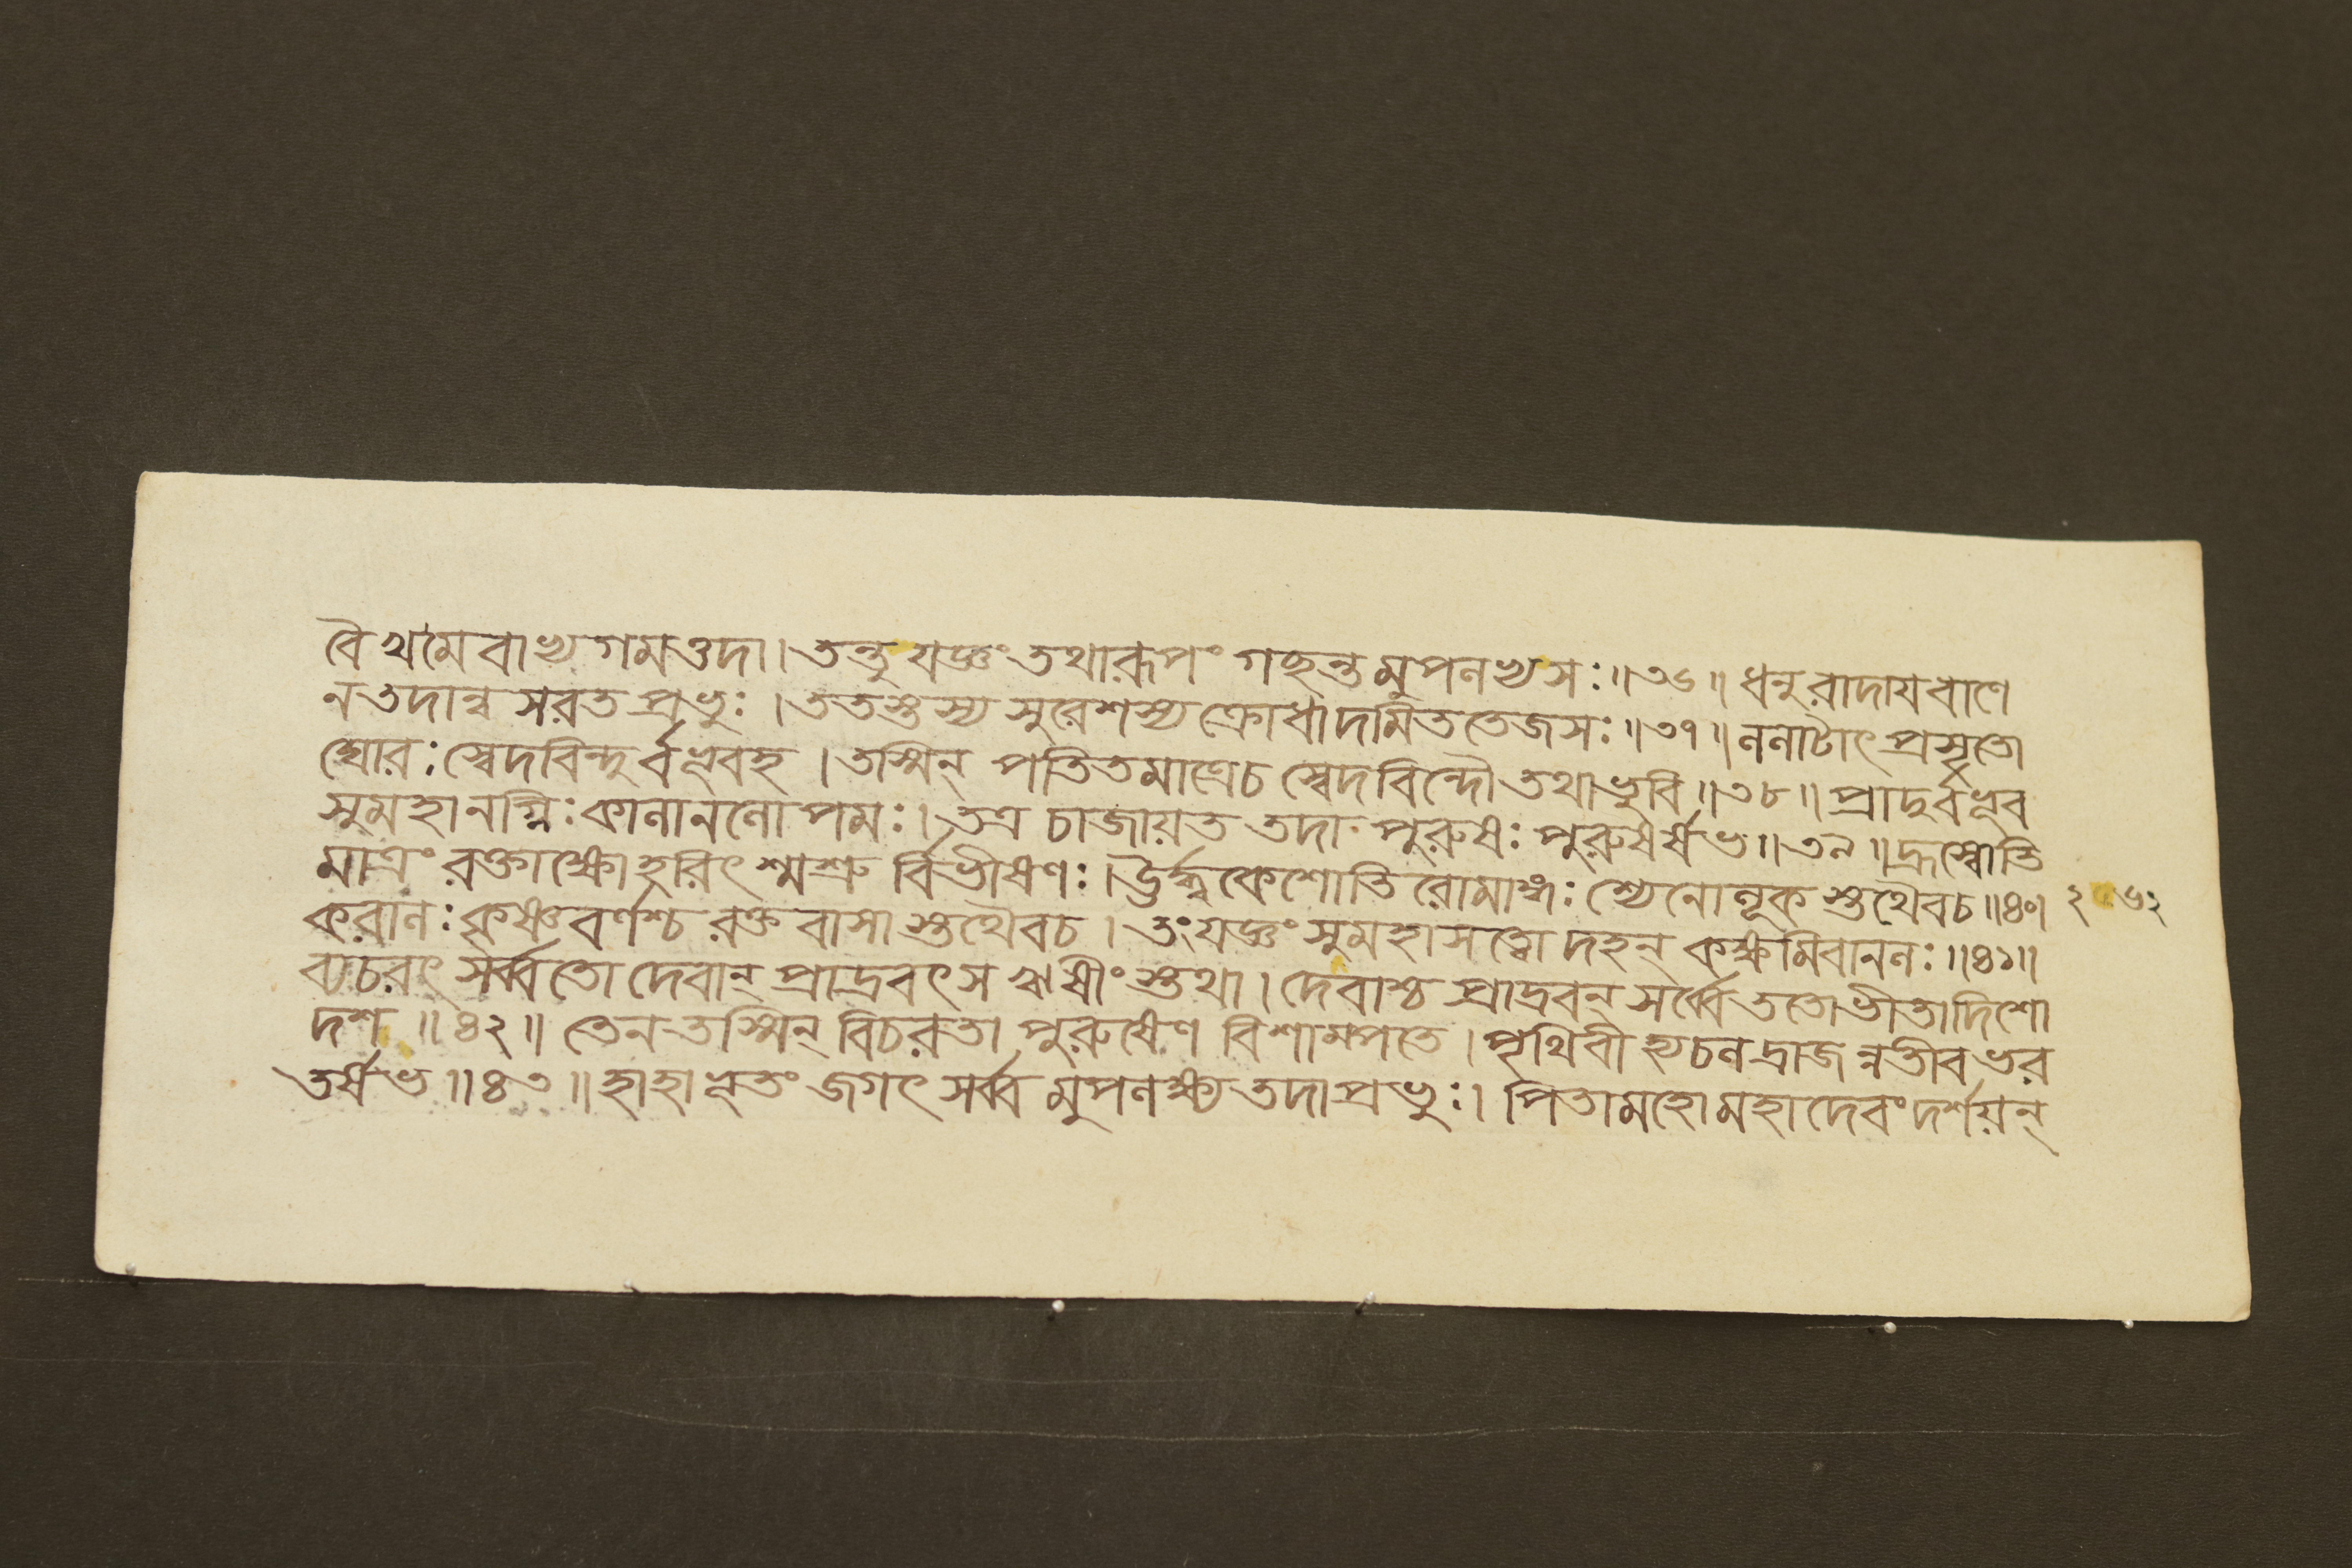 বৈ খমৈবাভ্যগমত্তদা। তন্তু যজ্ঞং তথারূপং গছন্তমুপলভ্য সঃ॥৩৬॥ ধনুরাদায বাণে
ন তদান্বসরত প্রভুঃ । ততস্তস্য সুরেশস্য ক্রোধাদমিততেজসঃ॥৩৭॥ ললাটাৎ প্রসৃতো
ঘোরঃ স্বেদবিন্দুর্ব্বভূবহ । তস্মিন্ পতিতমাত্রেচ স্বেদবিন্দৌ তথা ভুবি॥৩৮॥ প্রাদুর্ব্বভূব
সুমহানগ্নিঃ কালানলোপমঃ। তত্র চাজায়ত তদা পুরুষঃ পুরুষর্ষভ॥৩৯॥ হ্রস্বোতি
মাত্রং রক্তাক্ষো হরিৎ শ্মশ্রু র্বিভীষণঃ। উর্দ্ধকেশোতি রোমাঙ্গঃ শ্যেনোলূক স্তথৈবচ॥৪০। ২৬২
করালঃ কৃষ্ণবর্ণশ্চ রক্ত বাসা স্তথৈবচ । তং যজ্ঞং সুমহাসত্বো দহন্ কক্ষমিবানলঃ॥৪১॥
ব্যচরৎ সর্ব্বতো দেবান্ প্রাদ্রবৎ স ঋষীং স্তথা। দেবাশ্চ প্রাদ্রবন্ সর্ব্বে ততো ভীতা দিশো
দশ॥৪২॥ তেন তস্মিন্ বিচরতা পুরুষেণ বিশাম্পতে। পৃথিবী হ্যচলদ্রাজন্নতীব ভর
তর্ষভ॥৪৩॥ হাহা ভূতং জগৎ সর্ব্ব মুপলক্ষ্য তদা প্রভুঃ। পিতামহো মহাদেবং দর্শয়ন্